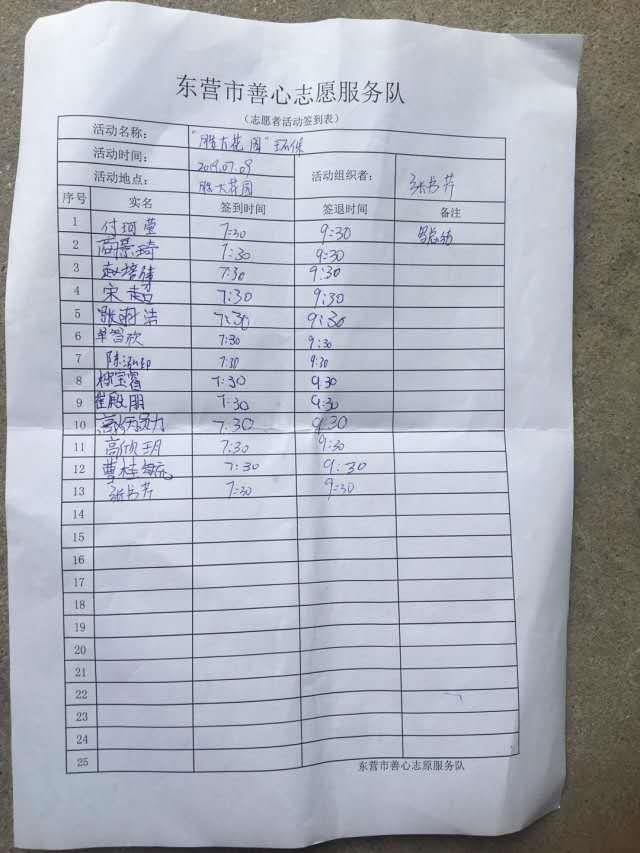 东营市善心志愿服务队
（志愿者活动签到表）
活动名称： "胜大花园"环保
活动时间： 2019.07.09
活动地点： 胜大花园
活动组织者： 张书芹
序号 实名 签到时间 签退时间 备注
1 付珂莹 7:30 9:30
2 7:30 9:30
3 赵培倩 7:30 9:30
4 宋 7:30 9:30
5 张雨洁 7:30 9:30
6 单智欣 7:30 9:30
7 陈泓如 7:30 9:30
8 柳宝睿 7:30 9:30
9 崔殿朋 7:30 9:30
10 7:30 9:30
11 高欣玥 7:30 9:30
12 曹桂毓 7:30 9:30
13 张书芹 7:30 9:30
14
15
16
17
18
19
20
21
22
23
24
25
东营市善心志愿服务队